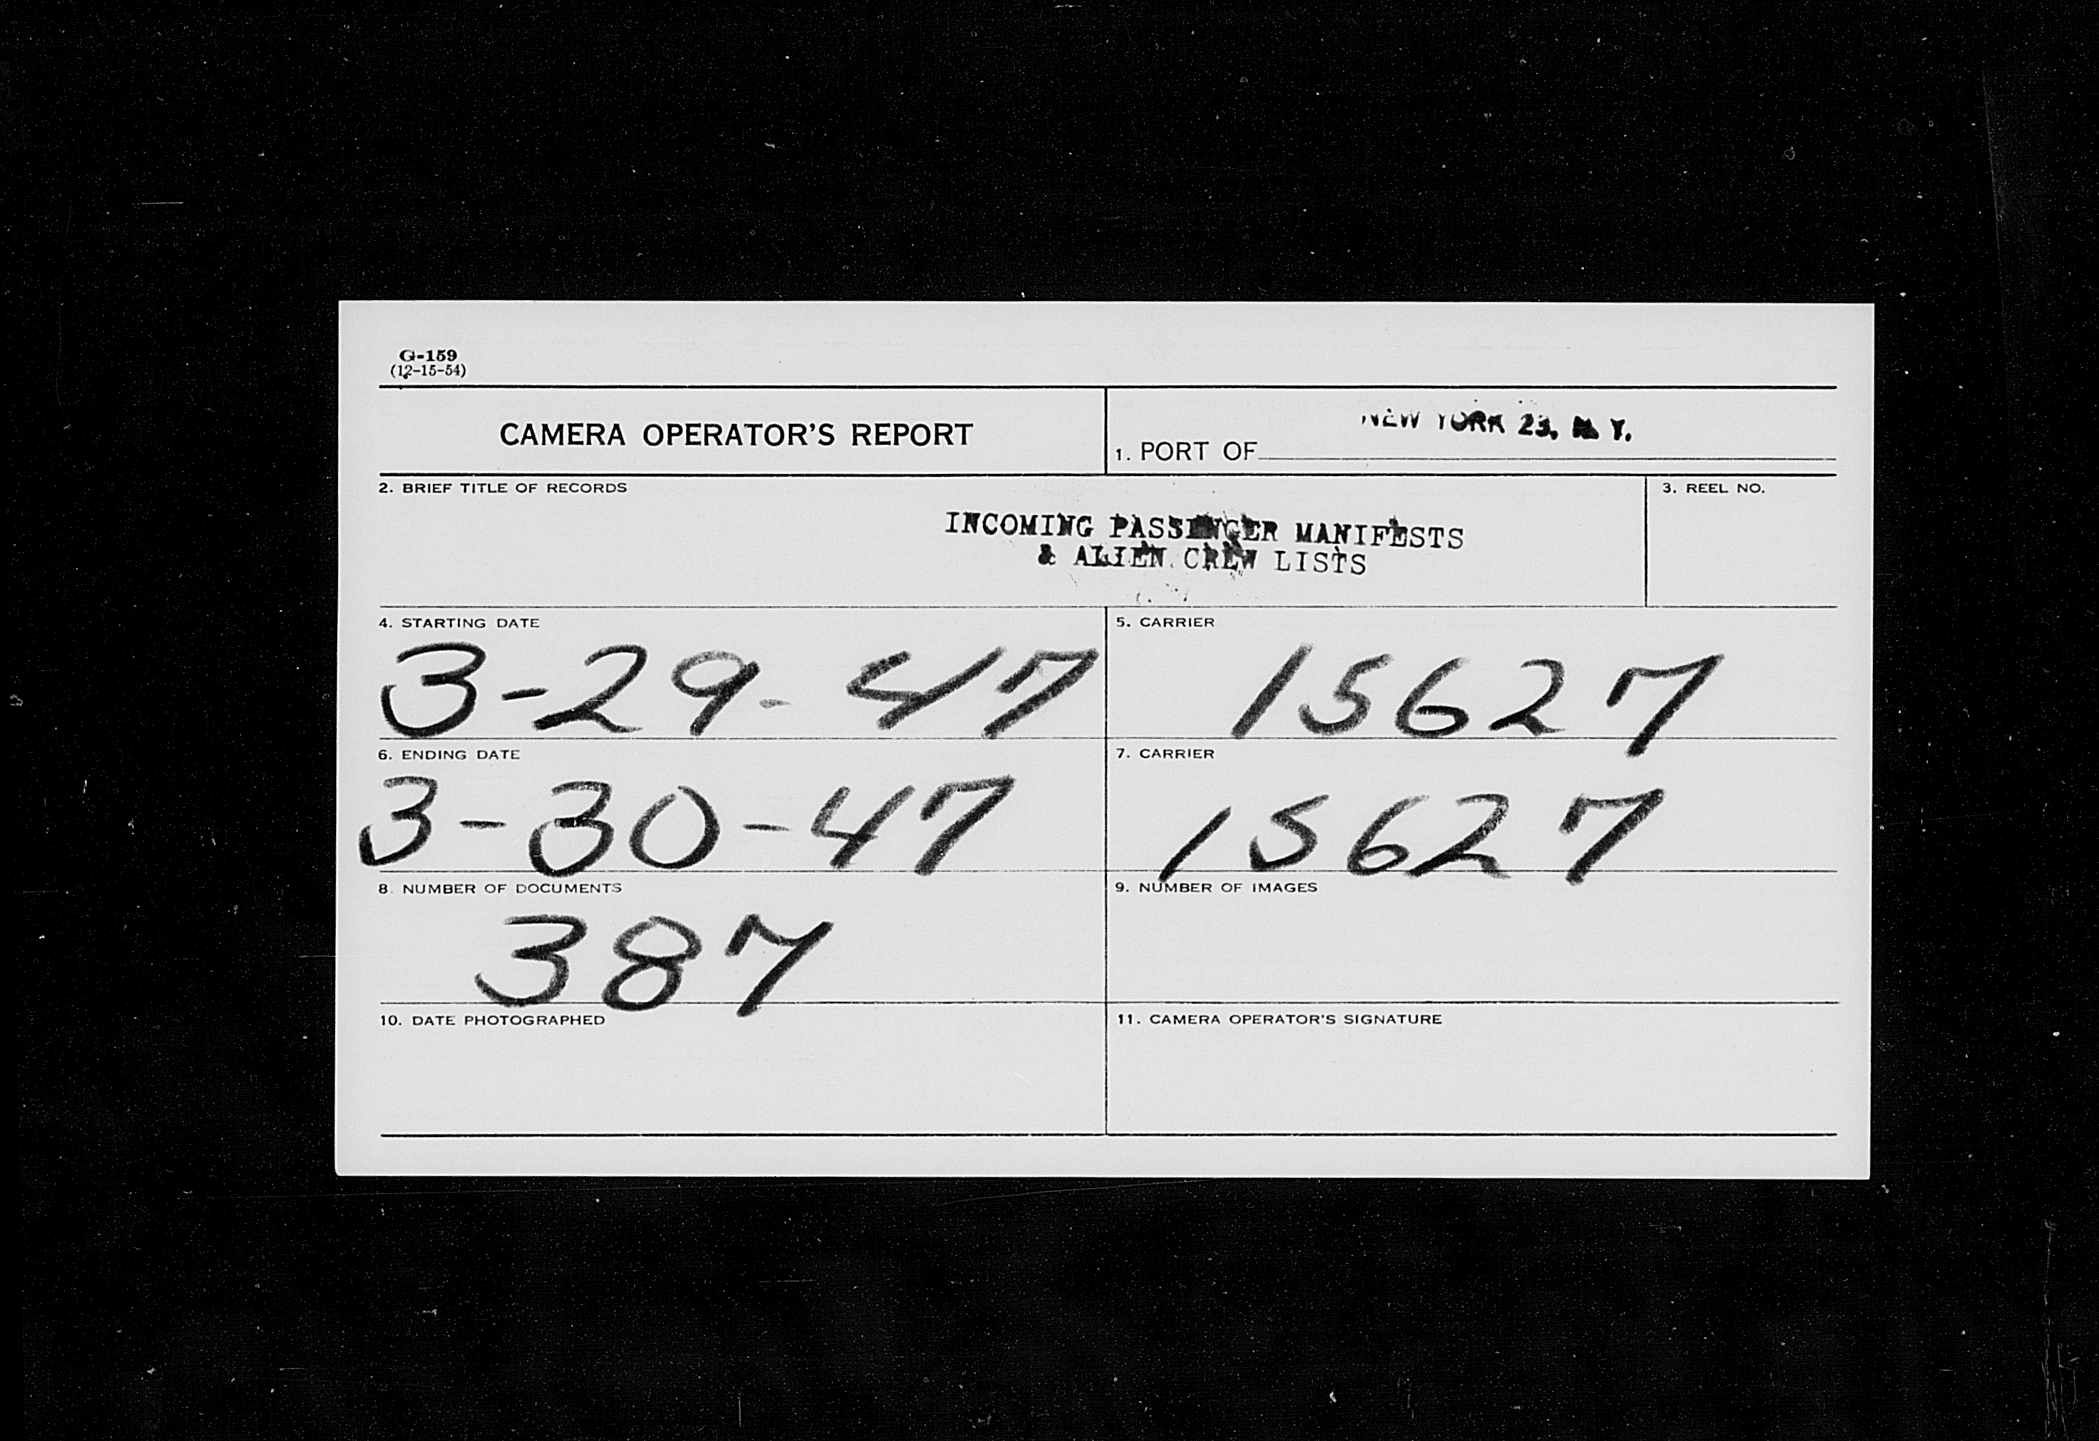 G-159
(12-15-54)
CAMERA OPERATOR'S REPORT
NEW YORK 23, N. Y.
1. PORT OF
2. BRIEF TITLE OF RECORDS
3. REEL NO.
INCOMING PASSENGER MANIFESTS
& ALIEN CREW LISTS
4. STARTING DATE
3-29-47
5. CARRIER
15627
6. ENDING DATE
3-30-47
7. CARRIER
15627
8. NUMBER OF DOCUMENTS
387
9. NUMBER OF IMAGES
10. DATE PHOTOGRAPHED
11. CAMERA OPERATOR'S SIGNATURE